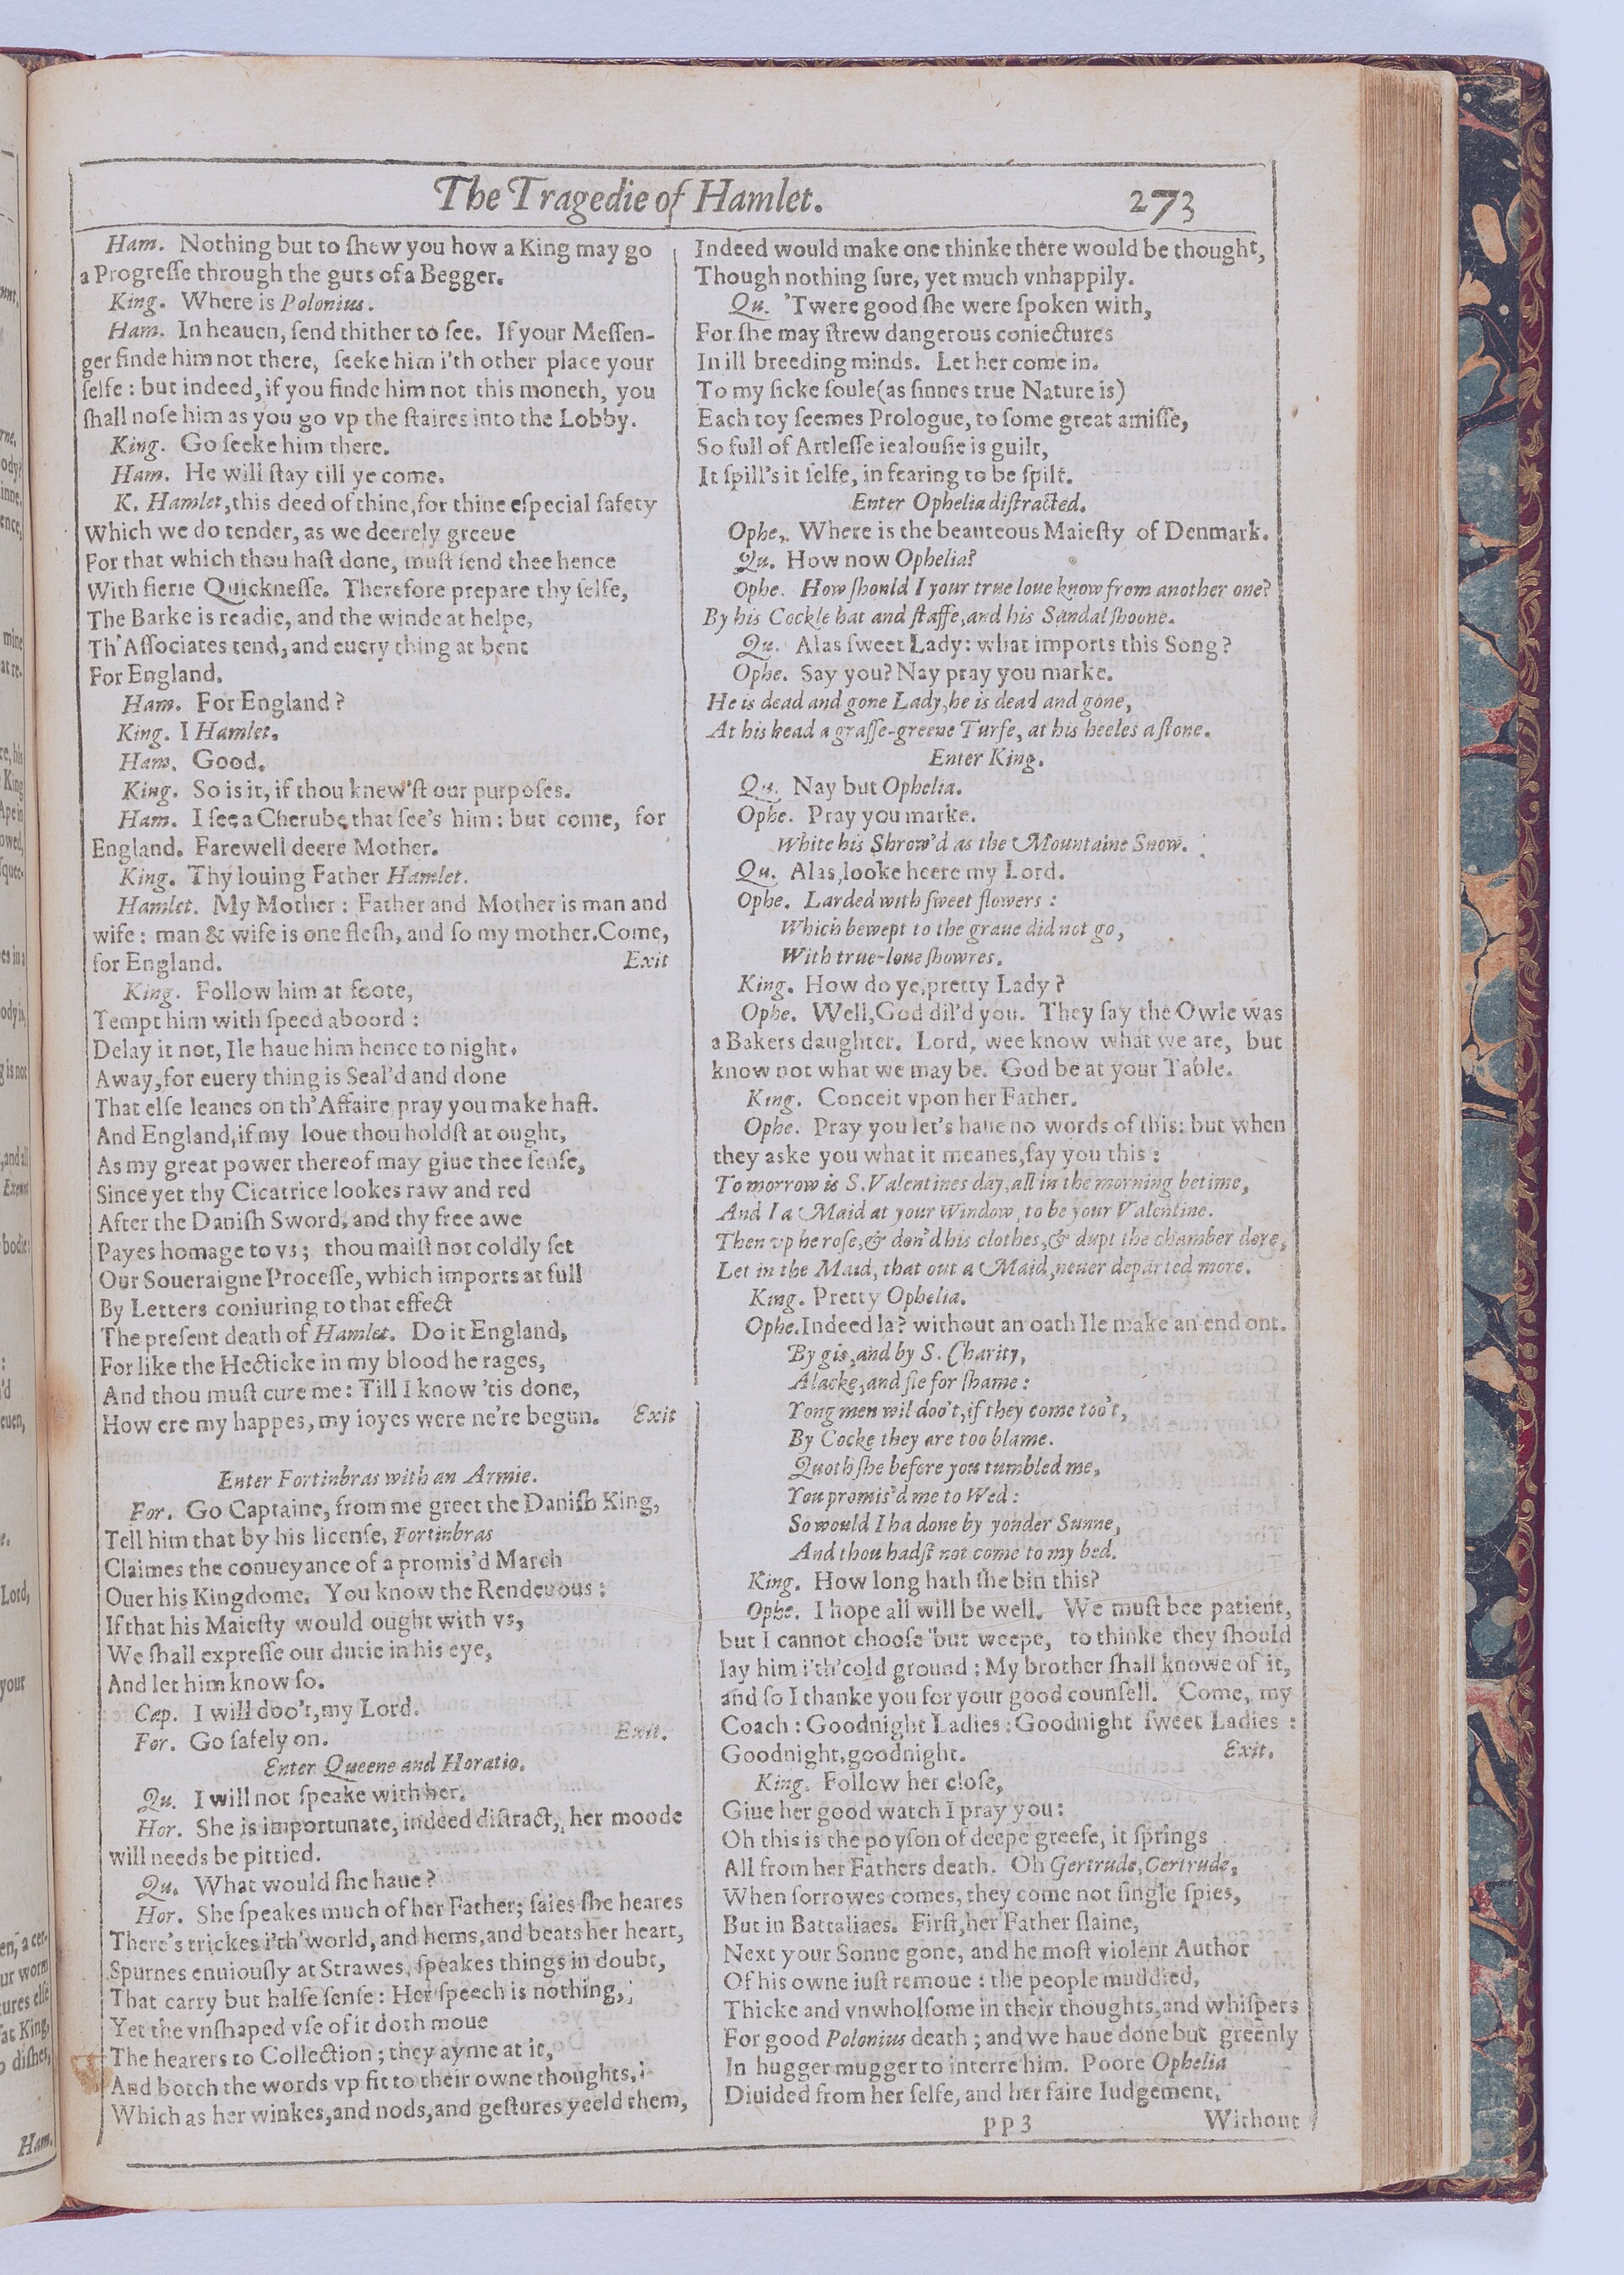 The Tragedie of Hamlet.
273
Ham. Nothing but to ſhew you how a King may go
a Progreſſe through the guts of a Begger.
King. Where is Polonius.
Ham. In heauen, ſend thither to ſee. If your Meſſen-
ger finde him not there, ſeeke him i'th other place your
ſelfe: but indeed, if you finde him not this moneth, you
ſhall noſe him as you go vp the ſtaires into the Lobby.
King. Go ſeeke him there.
Ham. He will ſtay till ye come.
K. Hamlet, this deed of thine, for thine eſpecial ſafety
Which we do tender, as we deerely greeue
For that which thou haſt done, muſt ſend thee hence
With fierie Quickneſſe. Therefore prepare thy ſelfe,
The Barke is readie, and the winde at helpe,
Th'Aſſociates tend, and euery thing at bent
For England.
Ham. For England?
King. I Hamlet.
Ham. Good.
King. So is it, if thou knew'ſt our purpoſes.
Ham. I ſee a Cherube that ſee's him: but come, for
England. Farewell deere Mother.
King. Thy louing Father Hamlet.
Hamlet. My Mother: Father and Mother is man and
wife: man & wife is one fleſh, and ſo my mother. Come,
for England. Exit
King. Follow him at foote,
Tempt him with ſpeed aboord:
Delay it not, Ile haue him hence to night.
Away, for euery thing is Seal'd and done
That elſe leanes on th'Affaire, pray you make haſt.
And England, if my loue thou holdſt at ought,
As my great power thereof may giue thee ſenſe,
Since yet thy Cicatrice lookes raw and red
After the Daniſh Sword, and thy free awe
Payes homage to vs; thou maiſt not coldly ſet
Our Soueraigne Proceſſe, which imports at full
By Letters coniuring to that effect
The preſent death of Hamlet. Do it England,
For like the Hecticke in my blood he rages,
And thou muſt cure me: Till I know 'tis done,
How ere my happes, my ioyes were ne're begun. Exit
Enter Fortinbras with an Armie.
For. Go Captaine, from me greet the Daniſh King,
Tell him that by his licenſe, Fortinbras
Claimes the conueyance of a promis'd March
Ouer his Kingdome. You know the Rendeuous:
If that his Maieſty would ought with vs,
We ſhall expreſſe our dutie in his eye,
And let him know ſo.
Cap. I will doo't, my Lord.
For. Go ſafely on. Exit.
Enter Queene and Horatio.
Qu. I will not ſpeake with her.
Hor. She is importunate, indeed diſtract, her moode
will needs be pittied.
Qu. What would ſhe haue?
Hor. She ſpeakes much of her Father; ſaies ſhe heares
There's trickes i'th'world, and hems, and beats her heart,
Spurnes enuiouſly at Strawes, ſpeakes things in doubt,
That carry but halfe ſenſe: Her ſpeech is nothing,
Yet the vnſhaped vſe of it doth moue
The hearers to Collection; they ayme at it,
And botch the words vp fit to their owne thoughts,
Which as her winkes, and nods, and geſtures yeeld them,
Indeed would make one thinke there would be thought,
Though nothing ſure, yet much vnhappily.
Qu. 'Twere good ſhe were ſpoken with,
For ſhe may ſtrew dangerous coniectures
In ill breeding minds. Let her come in.
To my ſicke ſoule (as ſinnes true Nature is)
Each toy ſeemes Prologue, to ſome great amiſſe,
So full of Artleſſe iealouſie is guilt,
It ſpill's it ſelfe, in fearing to be ſpilt.
Enter Ophelia diſtracted.
Ophe. Where is the beauteous Maieſty of Denmark.
Qu. How now Ophelia?
Ophe. How ſhould I your true loue know from another one?
By his Cockle hat and ſtaffe, and his Sandal ſhoone.
Qu. Alas ſweet Lady: what imports this Song?
Ophe. Say you? Nay pray you marke.
He is dead and gone Lady, he is dead and gone,
At his head a graſſe-greene Turfe, at his heeles a ſtone.
Enter King.
Qu. Nay but Ophelia.
Ophe. Pray you marke.
White his Shrow'd as the Mountaine Snow.
Qu. Alas, looke heere my Lord.
Ophe. Larded with ſweet flowers:
Which bewept to the graue did not go,
With true-loue ſhowres.
King. How do ye, pretty Lady?
Ophe. Well, God dil'd you. They ſay the Owle was
a Bakers daughter. Lord, wee know what we are, but
know not what we may be. God be at your Table.
King. Conceit vpon her Father.
Ophe. Pray you let's haue no words of this: but when
they aske you what it meanes, ſay you this:
To morrow is S. Valentines day, all in the morning betime,
And I a Maid at your Window, to be your Valentine.
Then vp he roſe, & don'd his clothes, & dupt the chamber dore,
Let in the Maid, that out a Maid, neuer departed more.
King. Pretty Ophelia.
Ophe. Indeed la? without an oath Ile make an end ont.
By gis, and by S. Charity,
Alacke, and fie for ſhame:
Yong men wil doo't, if they come too't,
By Cocke they are too blame.
Quoth ſhe before you tumbled me,
You promis'd me to Wed:
So would I ha done by yonder Sunne,
And thou hadſt not come to my bed.
King. How long hath ſhe bin this?
Ophe. I hope all will be well. We muſt bee patient,
but I cannot chooſe but weepe, to thinke they ſhould
lay him i'th'cold ground: My brother ſhall knowe of it,
and ſo I thanke you for your good counſell. Come, my
Coach: Goodnight Ladies: Goodnight ſweet Ladies:
Goodnight, goodnight. Exit.
King. Follow her cloſe,
Giue her good watch I pray you:
Oh this is the poyſon of deepe greefe, it ſprings
All from her Fathers death. Oh Gertrude, Gertrude,
When ſorrowes comes, they come not ſingle ſpies,
But in Battaliaes. Firſt, her Father ſlaine,
Next your Sonne gone, and he moſt violent Author
Of his owne iuſt remoue: the people muddied,
Thicke and vnwholſome in their thoughts, and whiſpers
For good Polonius death; and we haue done but greenly
In hugger mugger to interre him. Poore Ophelia
Diuided from her ſelfe, and her faire Iudgement,
pp 3
Without